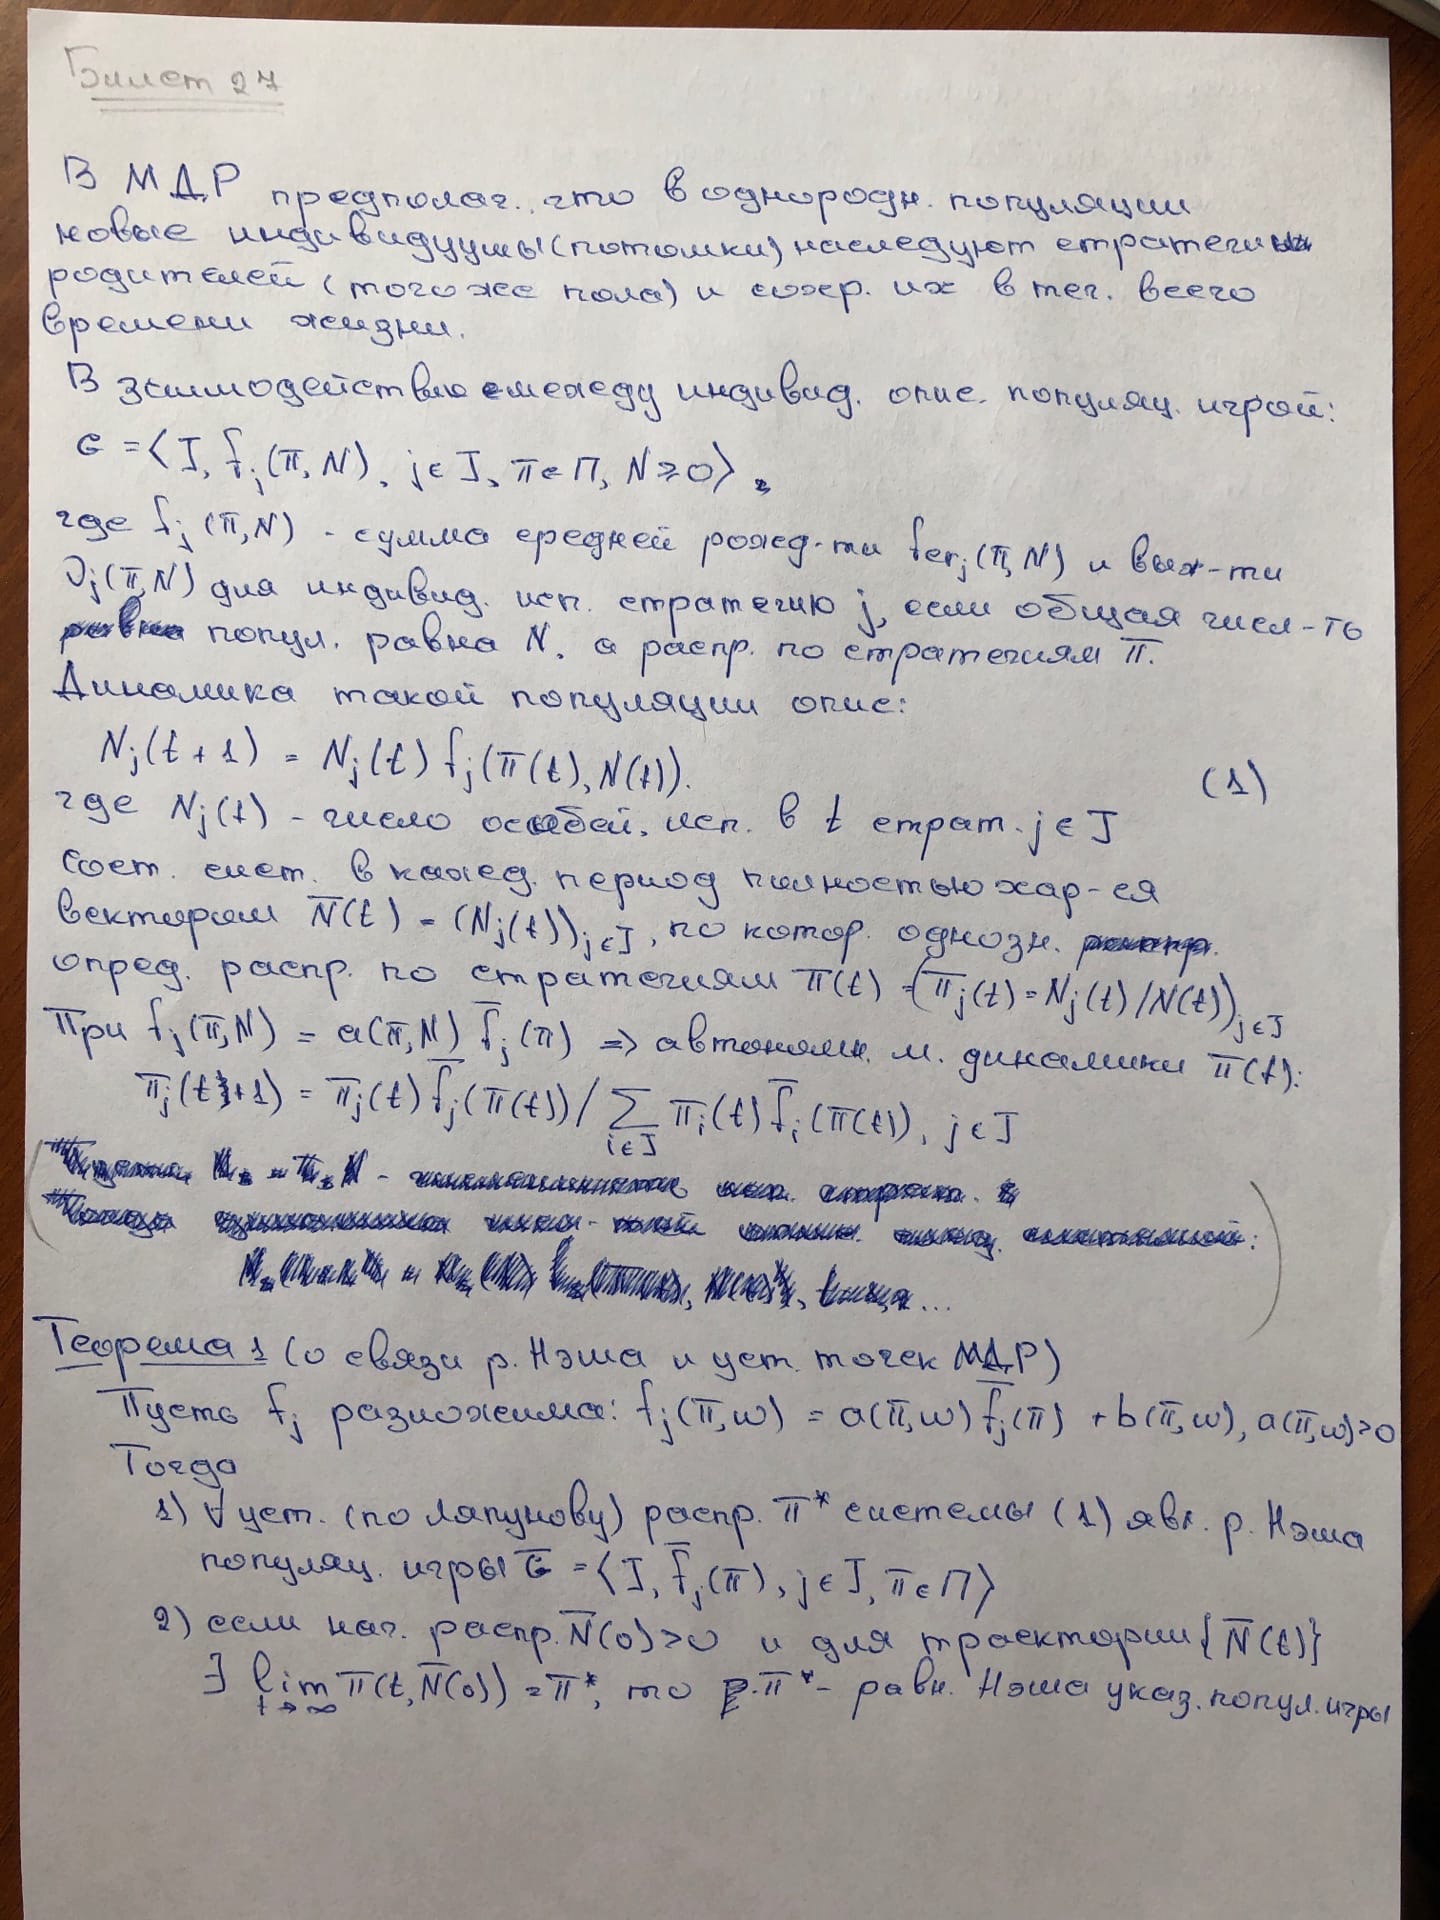 Билет 27
В МДР предполаг., что в однородн. популяции
новые индивидуумы (потомки) наследуют стратегии
родителей (того же пола) и сохр. их в теч. всего
времени жизни.
Взаимодействие между индивид. опис. популяц. игрой:
G = ⟨J, f_j(π, N), j ∈ J, π ∈ Π, N ≥ 0⟩,
где f_j(π, N) - сумма средней рожд-ти fer_j(π, N) и выж-ти
ν_j(π, N) для индивид. исп. стратегию j, если общая числ-ть
попул. равна N, а распр. по стратегиям π.
Динамика такой популяции опис:
N_j(t+1) = N_j(t) f_j(π(t), N(t)). (1)
где N_j(t) - число особей, исп. в t страт. j ∈ J
Сост. сист. в кажд. период полностью хар-ся
вектором N̅(t) = (N_j(t))_{j∈J}, по котор. однозн.
опред. распр. по стратегиям π(t) = (π_j(t) = N_j(t)/N(t))_{j∈J}
При f_j(π, N) = a(π, N) f̅_j(π) => автономн. м. динамики π(t):
π_j(t+1) = π_j(t) f̅_j(π(t)) / ∑_{i∈J} π_i(t) f̅_i(π(t)), j ∈ J
Теорема 1 (о связи р. Нэша и уст. точек МДР)
Пусть f_j разложима: f_j(π, w) = a(π, w) f̅_j(π) + b(π, w), a(π, w) > 0
Тогда
1) ∀ уст. (по Ляпунову) распр. π* системы (1) явл. р. Нэша
популяц. игры G̅ = ⟨J, f̅_j(π), j ∈ J, π ∈ Π⟩
2) если нач. распр. N̅(0) > 0 и для траектории {N̅(t)}
∃ lim_{t→∞} π(t, N̅(0)) = π*, то р. π* - равн. Нэша указ. попул. игры